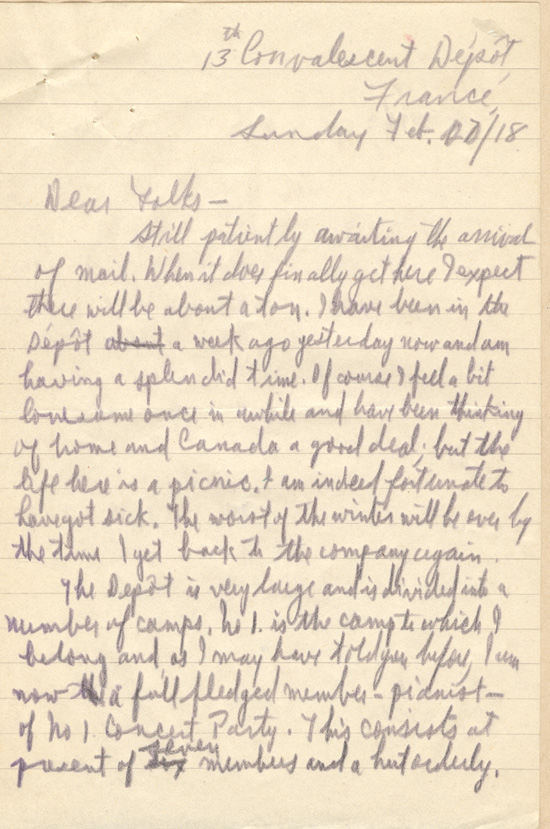 13th Convalescent Dépôt,
France,
Sunday Feb. /18
Dear Folks –
Still patiently awaiting the arrival
of mail. When it does finally get here I expect
there will be about a ton. I have been in the
Dépôt about a week ago yesterday now and am
having a splendid time. Of course I feel a bit
lonesome once in awhile and have been thinking
of home and Canada a good deal; but the
life here is a picnic. I am indeed fortunate to
have got sick. The worst of the winter will be over by
the time I get back to the company again.
The Depôt is very large and is divided into a
number of camps. No 1. is the camp to which I
belong and, as I may have told you before, I am
now a full fledged member – pianist –
of No 1 Concert Party. This consists at
present of six seven members and a hut orderly.